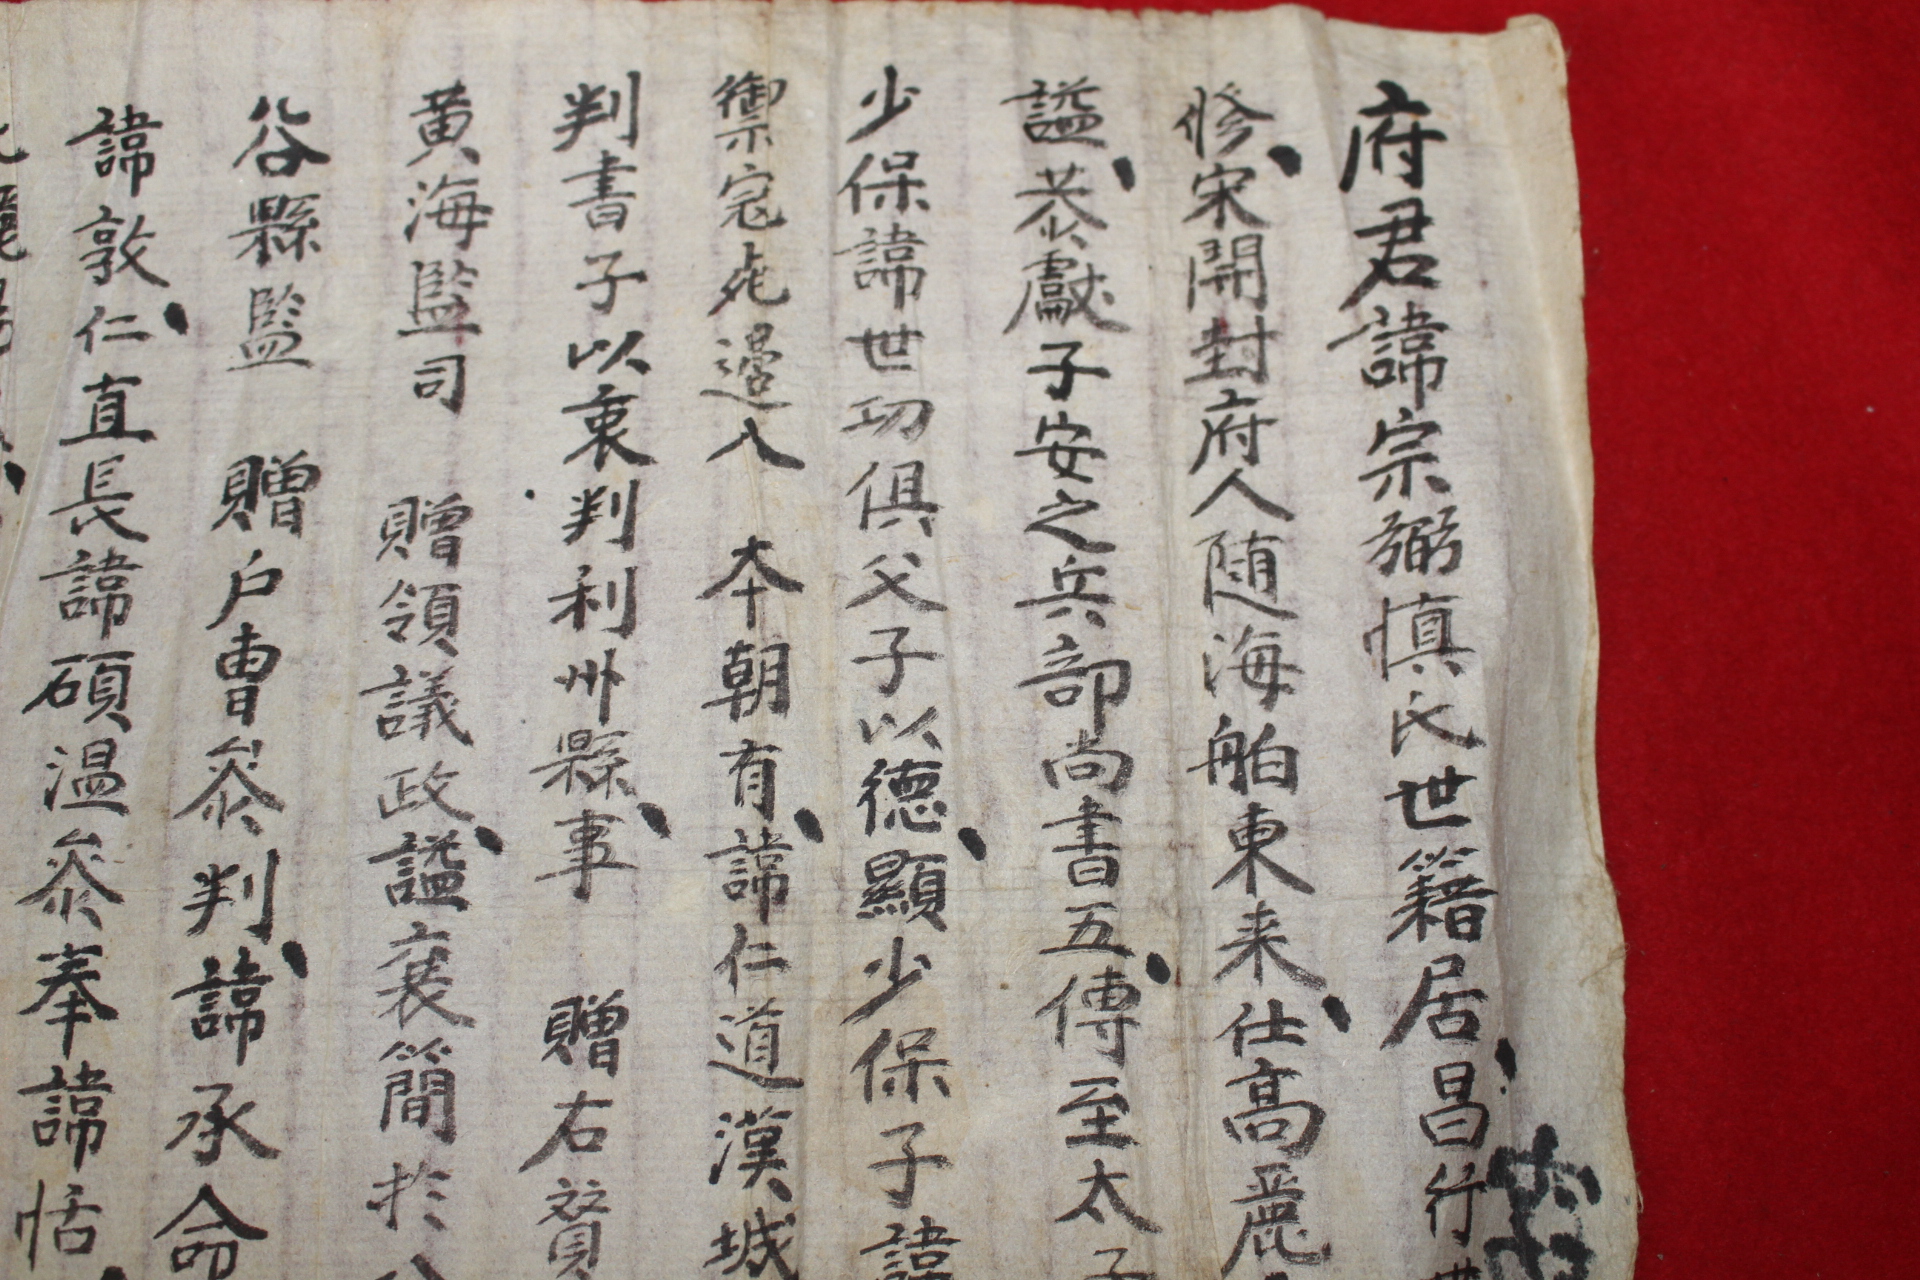 府君諱宗弼慎氏世籍居昌
修宋開封府人随海舶東来仕高麗
謚恭獻子安之兵部尚書五傳至太子
少保諱世功俱父子以德顯少保子諱
禦寇死邉八 本朝有諱仁道漢城
判書子以衷判利州縣事 贈右賛
黄海監司 贈領議政謚襄簡於
谷縣監 贈户曹叅判諱承命
諱敦仁直長諱碩温叅奉諱恬